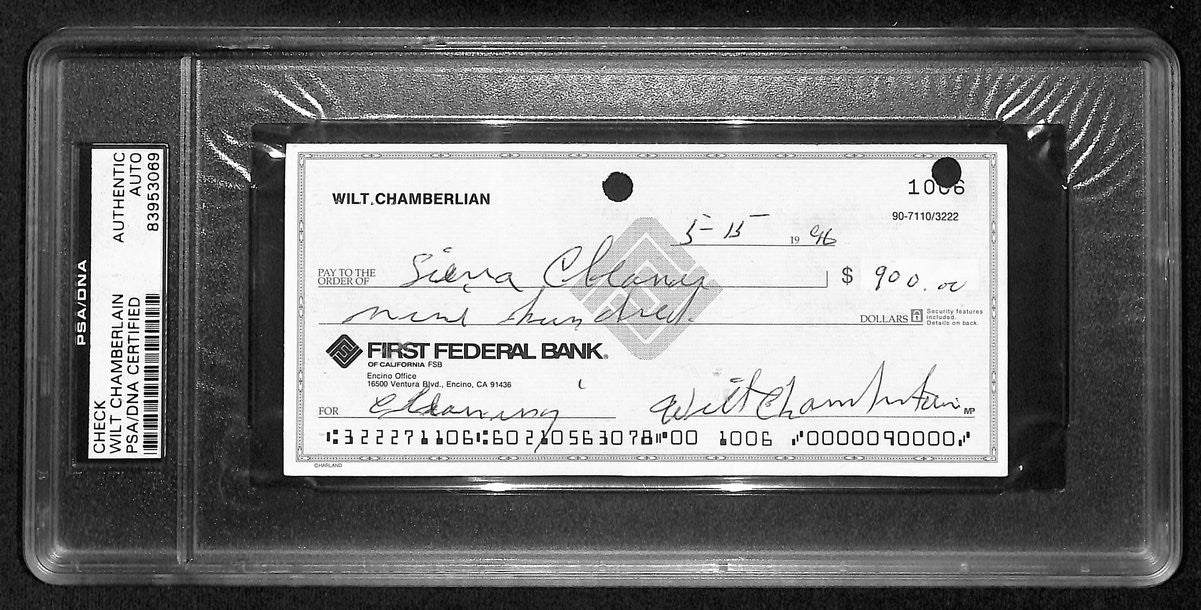 PSA/DNA
CHECK AUTHENTIC
WILT CHAMBERLAIN AUTO
PSA/DNA CERTIFIED 83953089
WILT.CHAMBERLIAN
1006
90-7110/3222
5-15 19 96
PAY TO THE
ORDER OF Sierra Cleaners $ 900.00
nine hundred DOLLARS Security features
included.
Details on back.
FIRST FEDERAL BANK®
OF CALIFORNIA FSB
Encino Office
16500 Ventura Blvd., Encino, CA 91436
FOR Cleaning Wilt Chamberlain MP
⑆322271106⑆60210563078⑈00 1006 ⑇0000090000⑇
©HARLAND